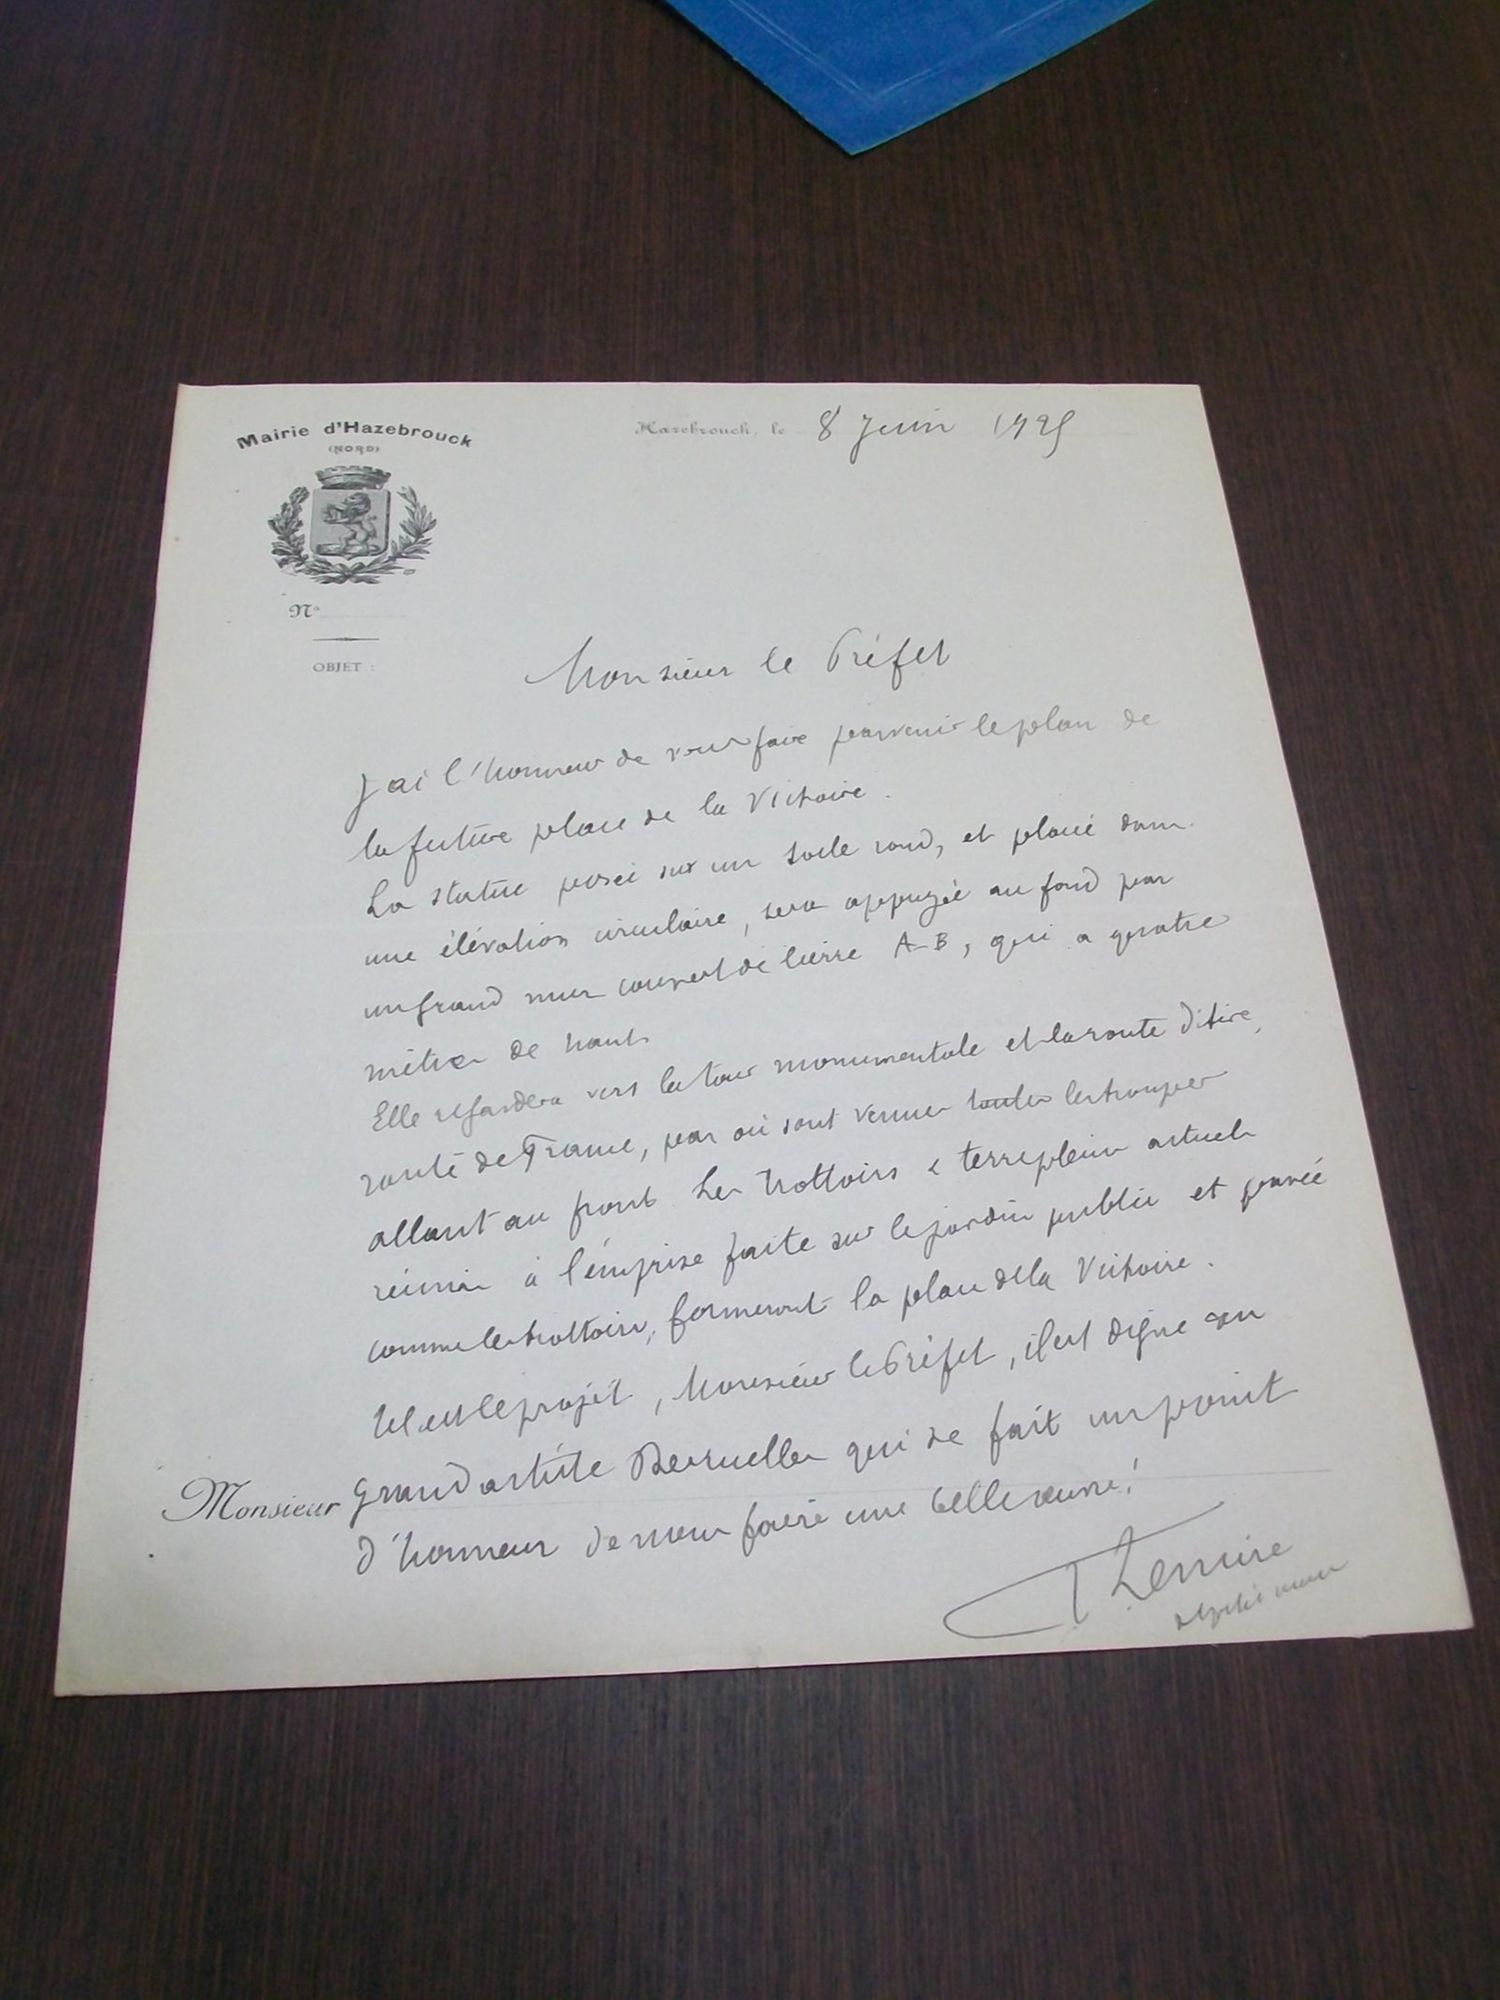 Mairie d'Hazebrouck
(NORD)
Hazebrouck, le 8 Juin 1925
N°
OBJET :
Monsieur le Préfet
J'ai l'honneur de vous faire parvenir le plan de
la future place de la Victoire.
La statue posée sur un socle rond, et placé dans
une élévation circulaire, sera appuyée au fond par
un grand mur couvert de lierre A-B, qui a quatre
mètres de haut.
Elle regardera vers la tour monumentale et la route d'Aire,
route de France, par où sont venues toutes les troupes
allant au front. Les trottoirs & terreplein actuels
réunis à l'emprise faite sur le jardin public et pavée
comme les trottoirs, formeront la place de la Victoire.
Tel est le projet, Monsieur le Préfet, il est digne du
Monsieur grand artiste Desruelles qui se fait un point
d'honneur de nous faire une belle œuvre!
Lemire
député maire